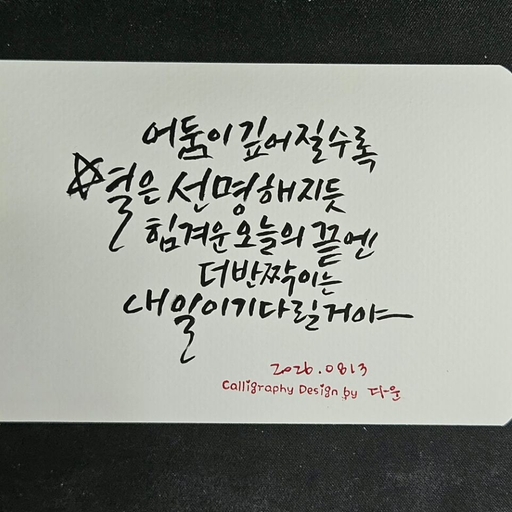 어둠이 깊어질수록
별은 선명해지듯
힘겨운 오늘의 끝엔
더 반짝이는
내일이 기다릴거야
2026.0813
Calligraphy Design by 다운